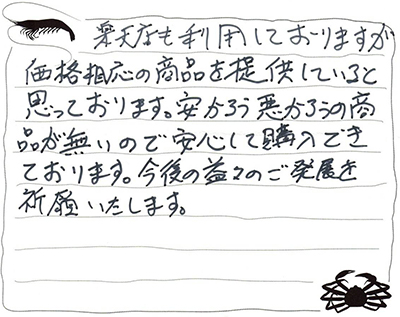 楽天店も利用しておりますが
価格相応の商品を提供していると
思っております。安かろう悪かろうの商
品が無いので安心して購入でき
ております。今後の益々のご発展を
祈願いたします。